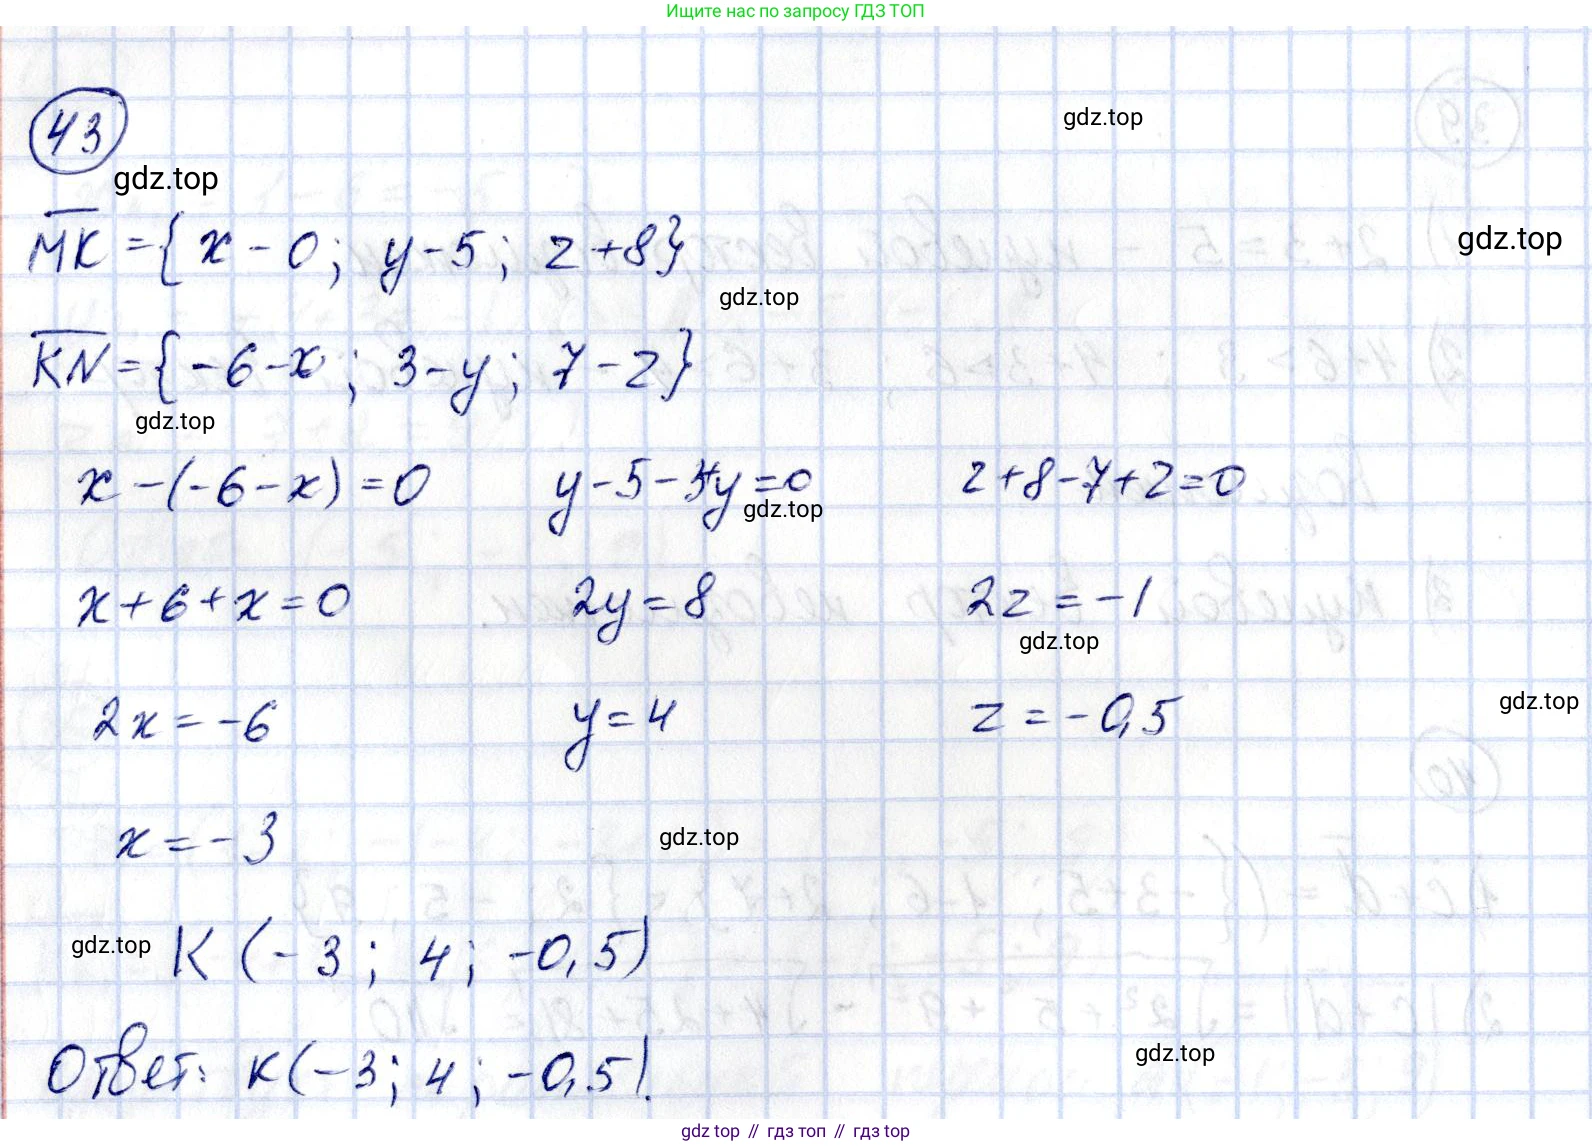 Ищите нас по запросу ГДЗ ТОП
43
gdz.top
gdz.top
MK = { x - 0; y - 5; z + 8}
gdz.top
gdz.top
KN = { -6 - x; 3 - y; 7 - z}
gdz.top
x - (-6 - x) = 0 y - 5 - 3 + y = 0 z + 8 - 7 + z = 0
gdz.top
x + 6 + x = 0 2y = 8 2z = -1
gdz.top
2x = -6 y = 4 z = -0,5
gdz.top
x = -3
gdz.top
gdz.top
K (-3; 4; -0,5)
Ответ: K(-3; 4; -0,5).
gdz.top
gdz top // гдз топ // гдз top